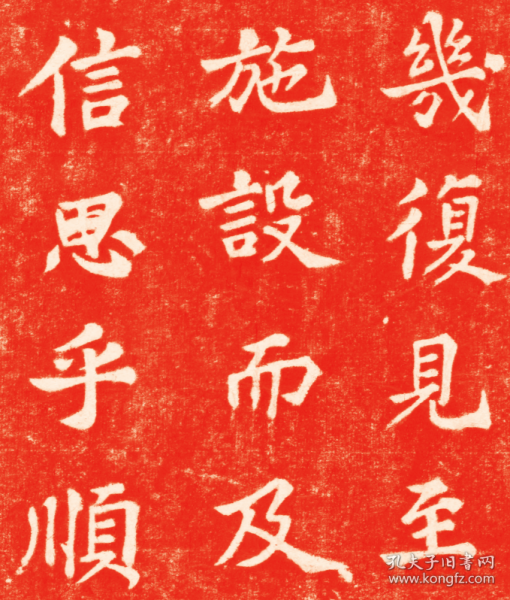 幾復見至
施設而及
信思乎順
孔夫子旧书网
www.kongfz.com